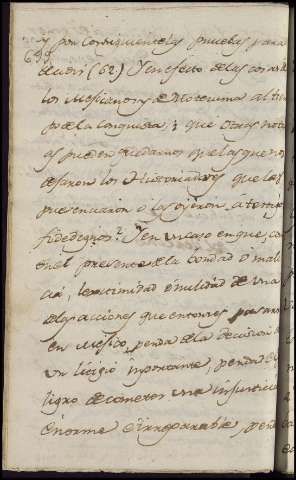 y por consiguiente las pruebas para
699
decidir (62) Y en efecto de las cosas de
los Mexicanos y de Moteuzuma al tiem
po de la conquista, que otras noti
as pueden quedarnos q.e las que nos
dejaron los Historiadores que las
presenciaron o las oyeron a testigos
fidedignos? Y en un caso en que, co
en el presente de la bondad o mali
cia, legitimidad o nulidad de una
de las acciones que entonces pasaron
en Mexico, penda de la decision de
un litigio importante, penda el
ligro de cometer una injusticia
enorme e irreparable, pend